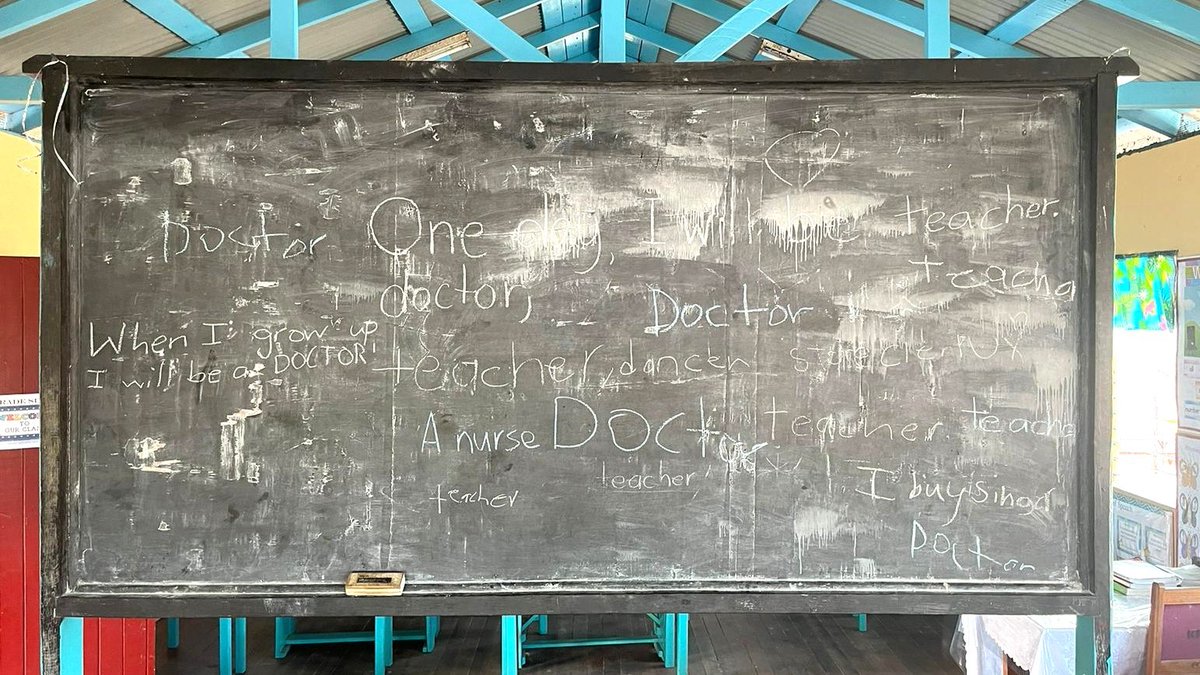 One day, I will be teacher.
Doctor
doctor,
teacha
Doctor
When I grow up,
I will be a DOCTOR
teacher, dancer
A nurse DOCtor
teacher teacha
teacher
teacher
I buy singa
Doctor
WELCO
TO
OUR CLA